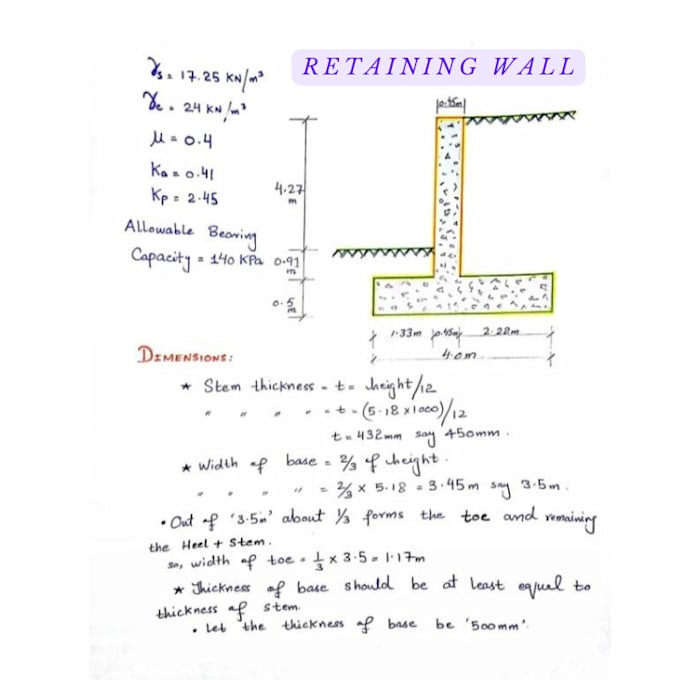 RETAINING WALL
γs = 17.25 KN/m³
γc = 24 KN/m³
μ = 0.4
Ka = 0.41
Kp = 2.45
Allowable Bearing
Capacity = 140 KPa
0.45m
4.27
m
0.91
m
0.5
m
1.33m 0.45m 2.22m
4.0m
DIMENSIONS:
* Stem thickness = t = height/12
" " " " = t = (5.18 x 1000)/12
t = 432mm say 450mm.
* Width of base = 2/3 of height.
" " " " = 2/3 x 5.18 = 3.45m say 3.5m.
• Out of '3.5m' about 1/3 forms the toe and remaining
the Heel + Stem.
so, width of toe = 1/3 x 3.5 = 1.17m
* Thickness of base should be at least equal to
thickness of stem.
• Let the thickness of base be '500mm'.